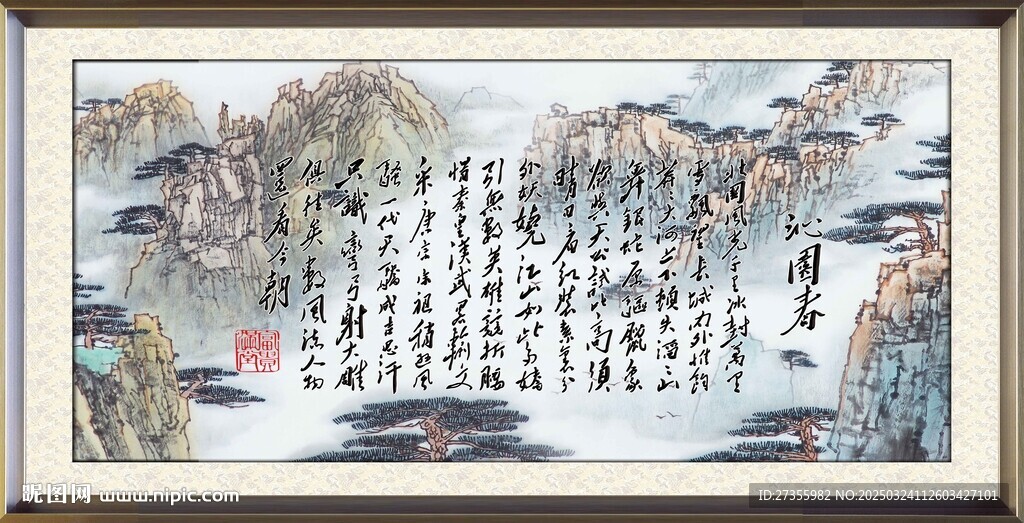 沁園春
北國風光千里冰封萬里
雪飄望長城內外惟餘
莽莽大河上下頓失滔滔山
舞銀蛇原驅臘象
欲與天公試比高須
晴日看紅裝素裹分
外妖嬈江山如此多嬌
引無數英雄競折腰
惜秦皇漢武略輸文
采唐宗宋祖稍遜風
騷一代天驕成吉思汗
只識彎弓射大雕
俱往矣數風流人物
還看今朝
昵图网 www.nipic.com
ID:27355982 NO:20250324112603427101